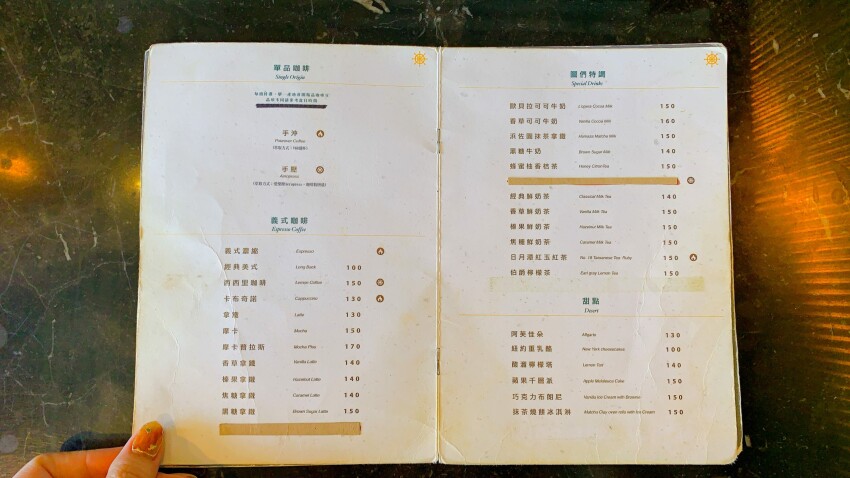 單品咖啡
Single Origin
手沖
Pourover Coffee
手壓
Aeropress
義式咖啡
Espresso Coffee
義式濃縮 Espresso
經典美式 Long Black 100
西西里咖啡 Iceson Coffee 150
卡布奇諾 Cappuccino 130
拿鐵 Latte 130
摩卡 Mocha 150
摩卡普拉斯 Mocha Plus 170
香草拿鐵 Vanilla Latte 140
榛果拿鐵 Hazelnut Latte 140
焦糖拿鐵 Caramel Latte 140
黑糖拿鐵 Brown Sugar Latte 150
關們特調
Special Drinks
歐貝拉可可牛奶 Cocoa Milk 150
香草可可牛奶 Vanilla Cocoa Milk 160
浜佐園抹茶拿鐵 Matcha Milk 150
黑糖牛奶 Brown Sugar Milk 140
蜂蜜桂香桔茶 Honey Citrus Tea 150
經典鮮奶茶 Classical Milk Tea 140
香草鮮奶茶 Vanilla Milk Tea 150
榛果鮮奶茶 Hazelnut Milk Tea 150
焦糖鮮奶茶 Caramel Milk Tea 150
日月潭紅玉紅茶 No. 18 Taiwanese Tea- Ruby 150
伯爵檸檬茶 Earl grey Lemon Tea 150
甜點
Desert
阿芙佳朵 Affgato 130
紐約重乳酪 New York Cheesecakes 100
檸檬塔 Lemon Tart 140
蘋果千層派 150
巧克力布朗尼 Vanilla Ice Cream with Brownie 150
抹茶燒餅冰淇淋 150